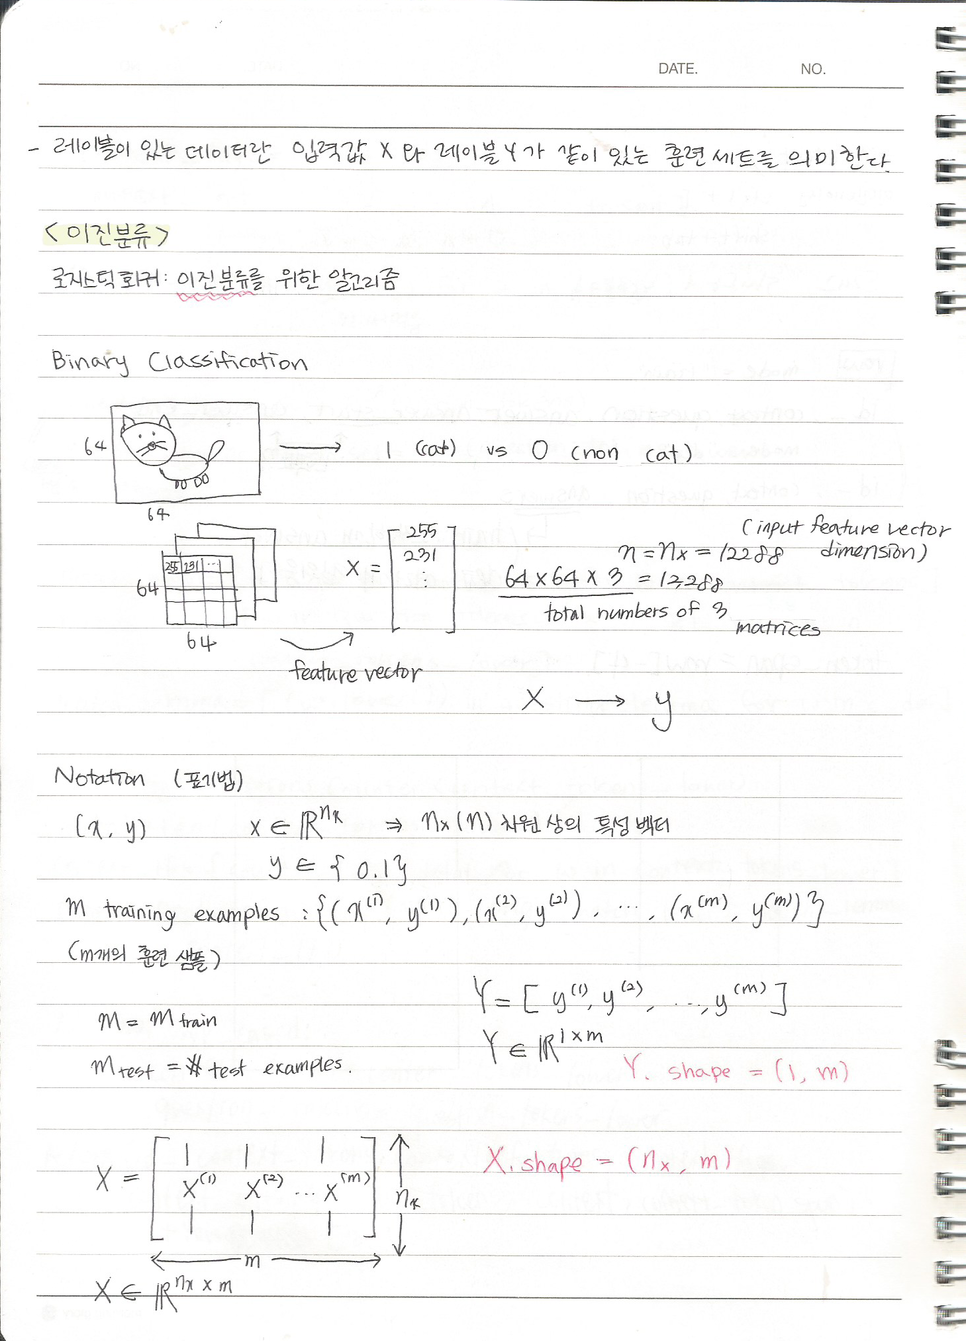 DATE. NO.
- 레이블이 있는 데이터란 입력값 X 와 레이블 Y가 같이 있는 훈련세트를 의미한다.
<이진분류>
로지스틱 회귀: 이진분류를 위한 알고리즘
Binary Classification
64
1 (cat) vs 0 (non cat)
64
255 231 ...
64
64
X = [255 231 ⋮]
n = nx = 12288 (input feature vector dimension)
64 x 64 x 3 = 12,288
total numbers of 3 matrices
feature vector
X → y
Notation (표기법)
(x, y) x ∈ ℝ^nx ⇒ nx(n) 차원 상의 특성 벡터
y ∈ { 0.1}
m training examples : {(x^(1), y^(1)), (x^(2), y^(2)), ..., (x^(m), y^(m))}
(m개의 훈련 샘플)
Y = [ y^(1), y^(2), ..., y^(m) ]
m = m train
Y ∈ ℝ^1×m
m test = # test examples.
Y. shape = (1, m)
X = [ X^(1) X^(2) ... X^(m) ] nx
X. shape = (nx, m)
m
X ∈ ℝ^nx × m